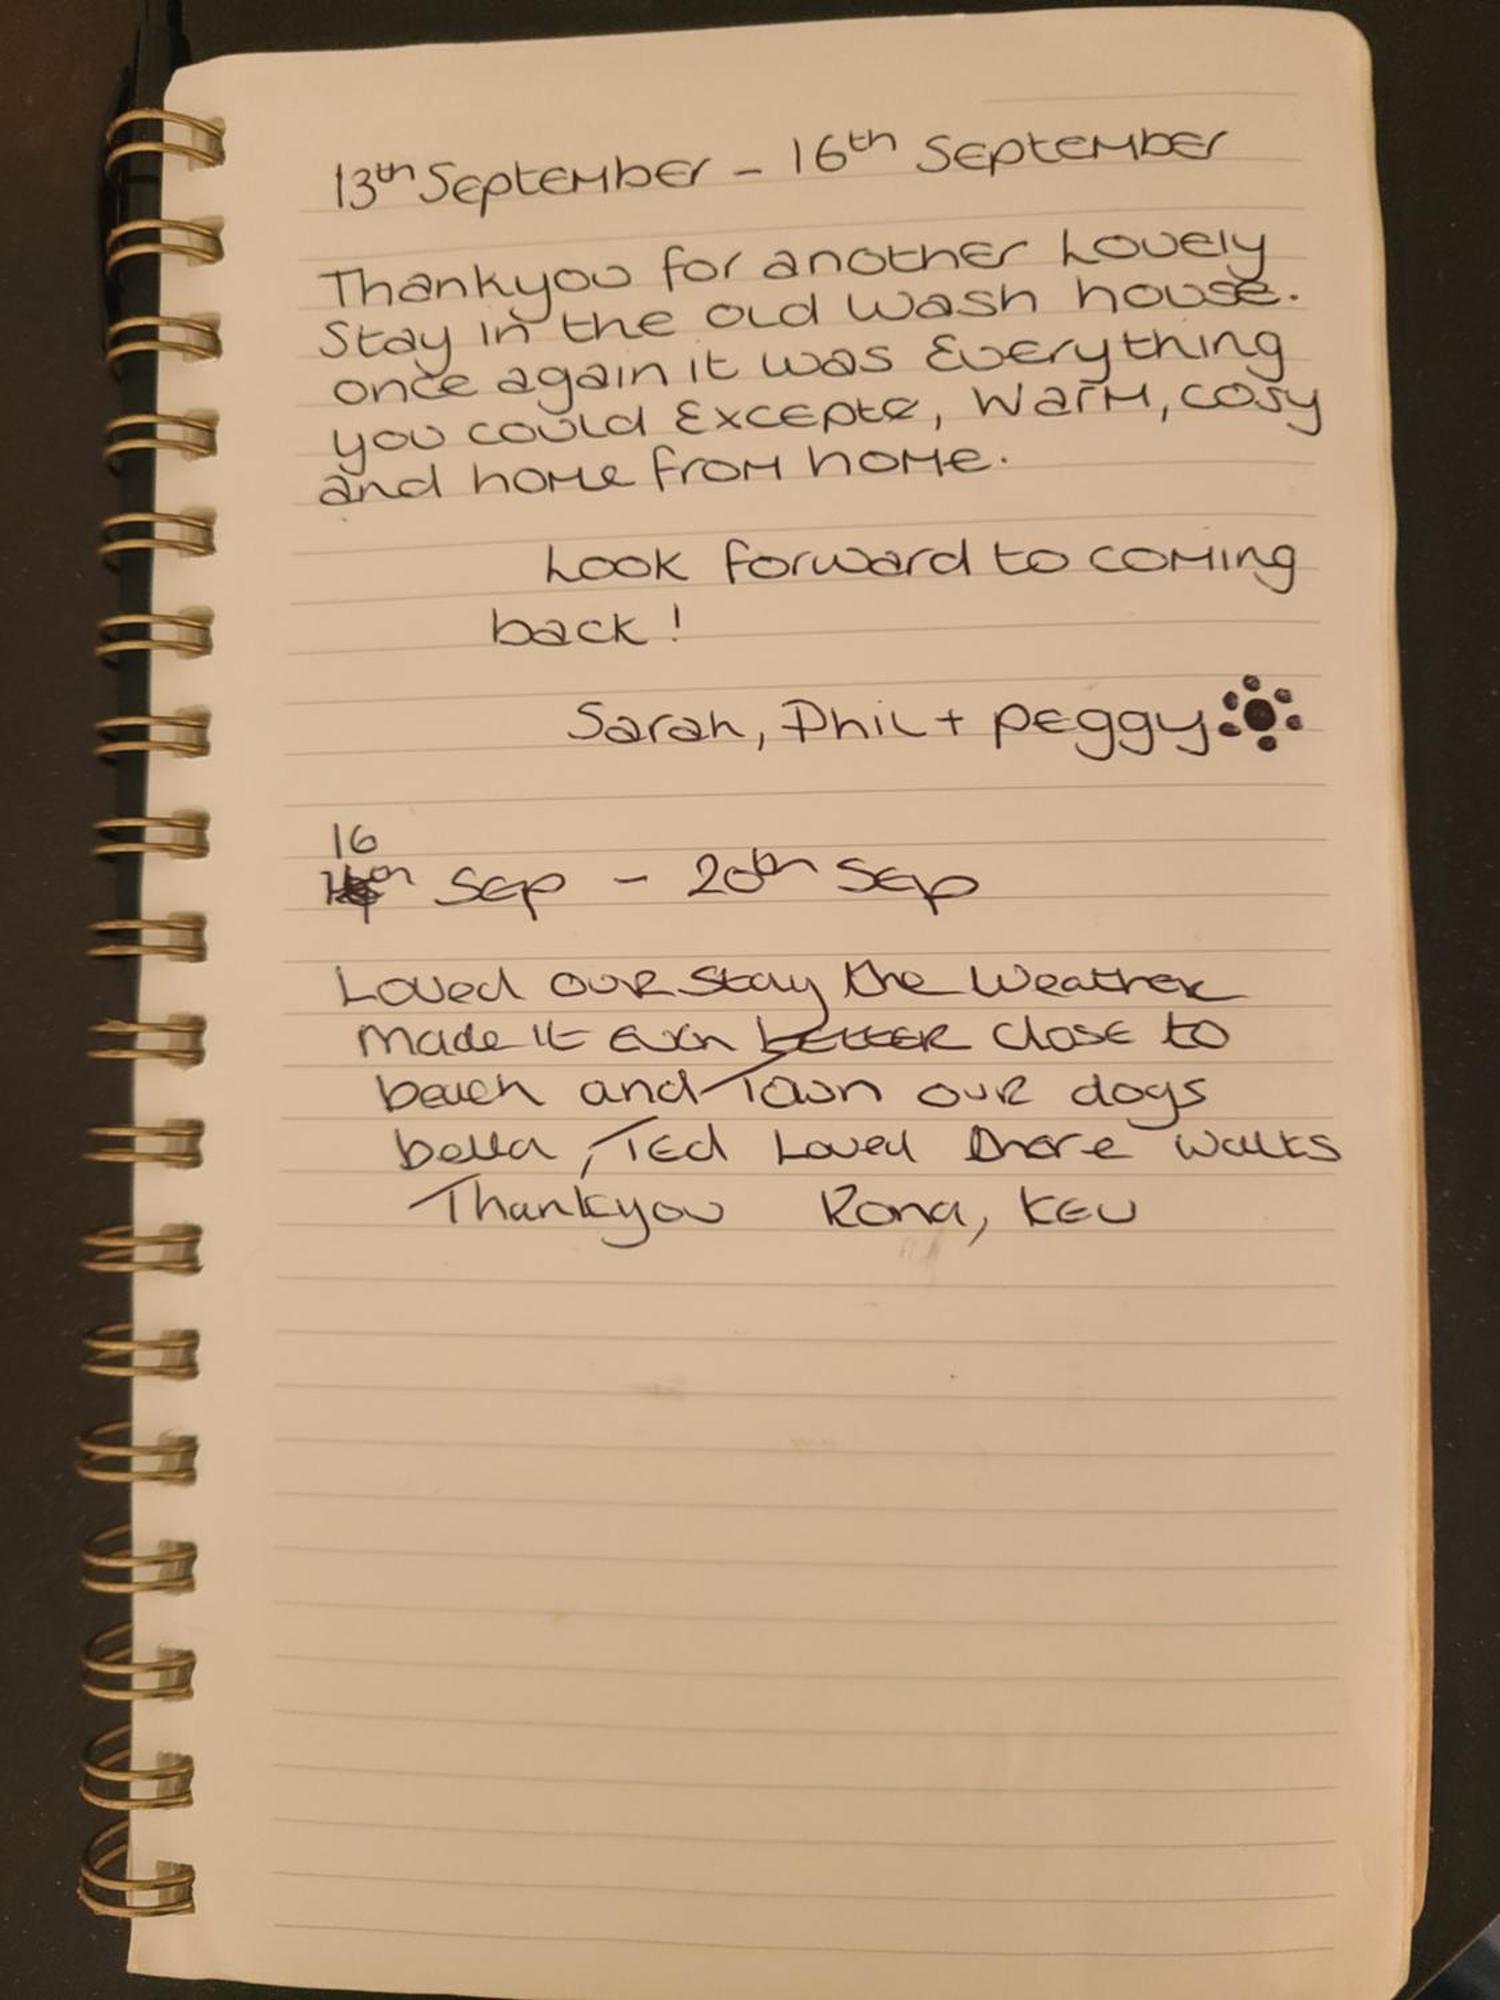 13th September - 16th September
Thankyou for another Lovely
Stay in the old wash house.
once again it was Everything
you could Excepte, warm, cosy
and home from home.
Look forward to coming
back!
Sarah, Phil + Peggy
16
th Sep - 20th Sep
Loved our stay the weather
made it even better close to
beach and Town our dogs
bella, Ted Loved there walks
Thankyou Rona, Kev